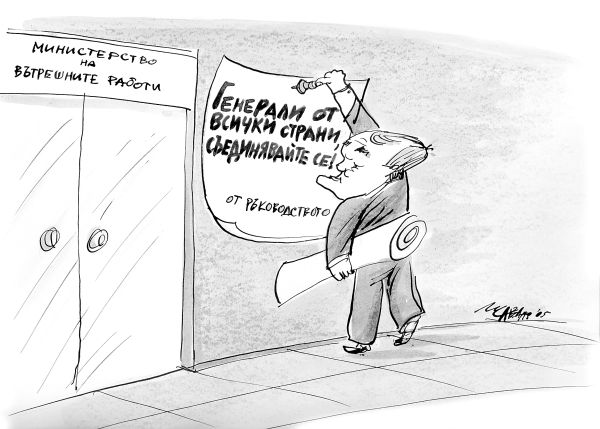 МИНИСТЕРСТВО
НА
ВЪТРЕШНИТЕ РАБОТИ
ГЕНЕРАЛИ ОТ
ВСИЧКИ СТРАНИ,
СЪЕДИНЯВАЙТЕ СЕ!
ОТ РЪКОВОДСТВОТО